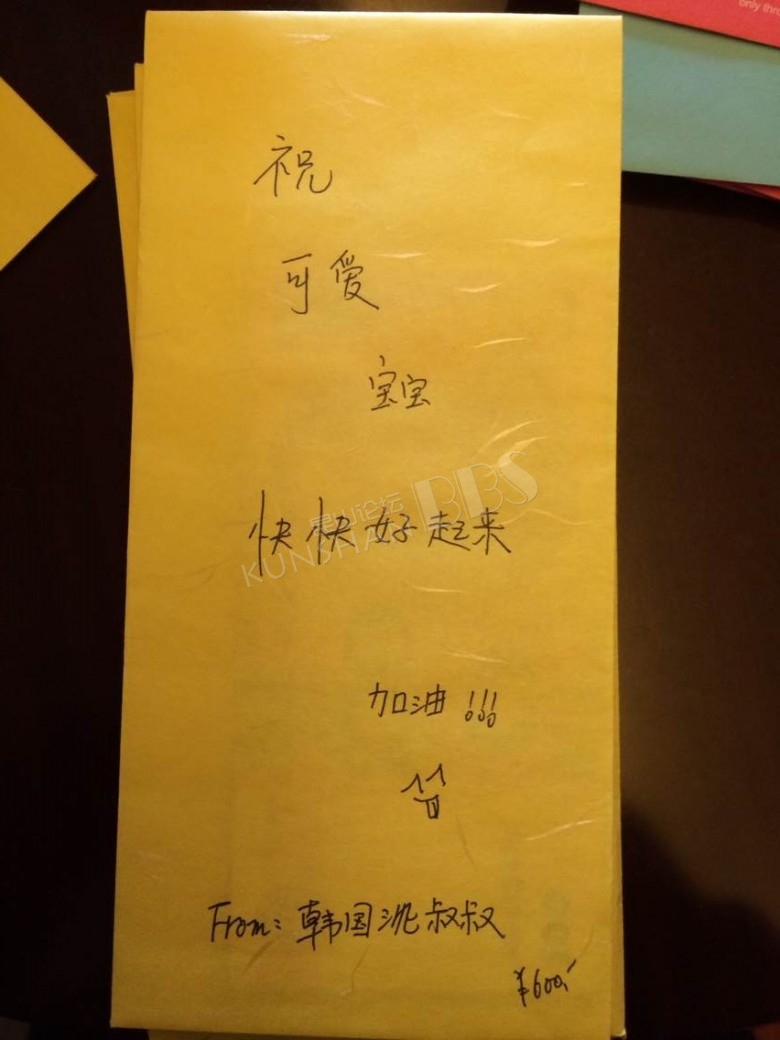 only thr
祝
可爱
宝宝
昆山论坛 BBS
KUNSHAN
快快好起来
加油!!!
From: 韩国沈叔叔
¥600